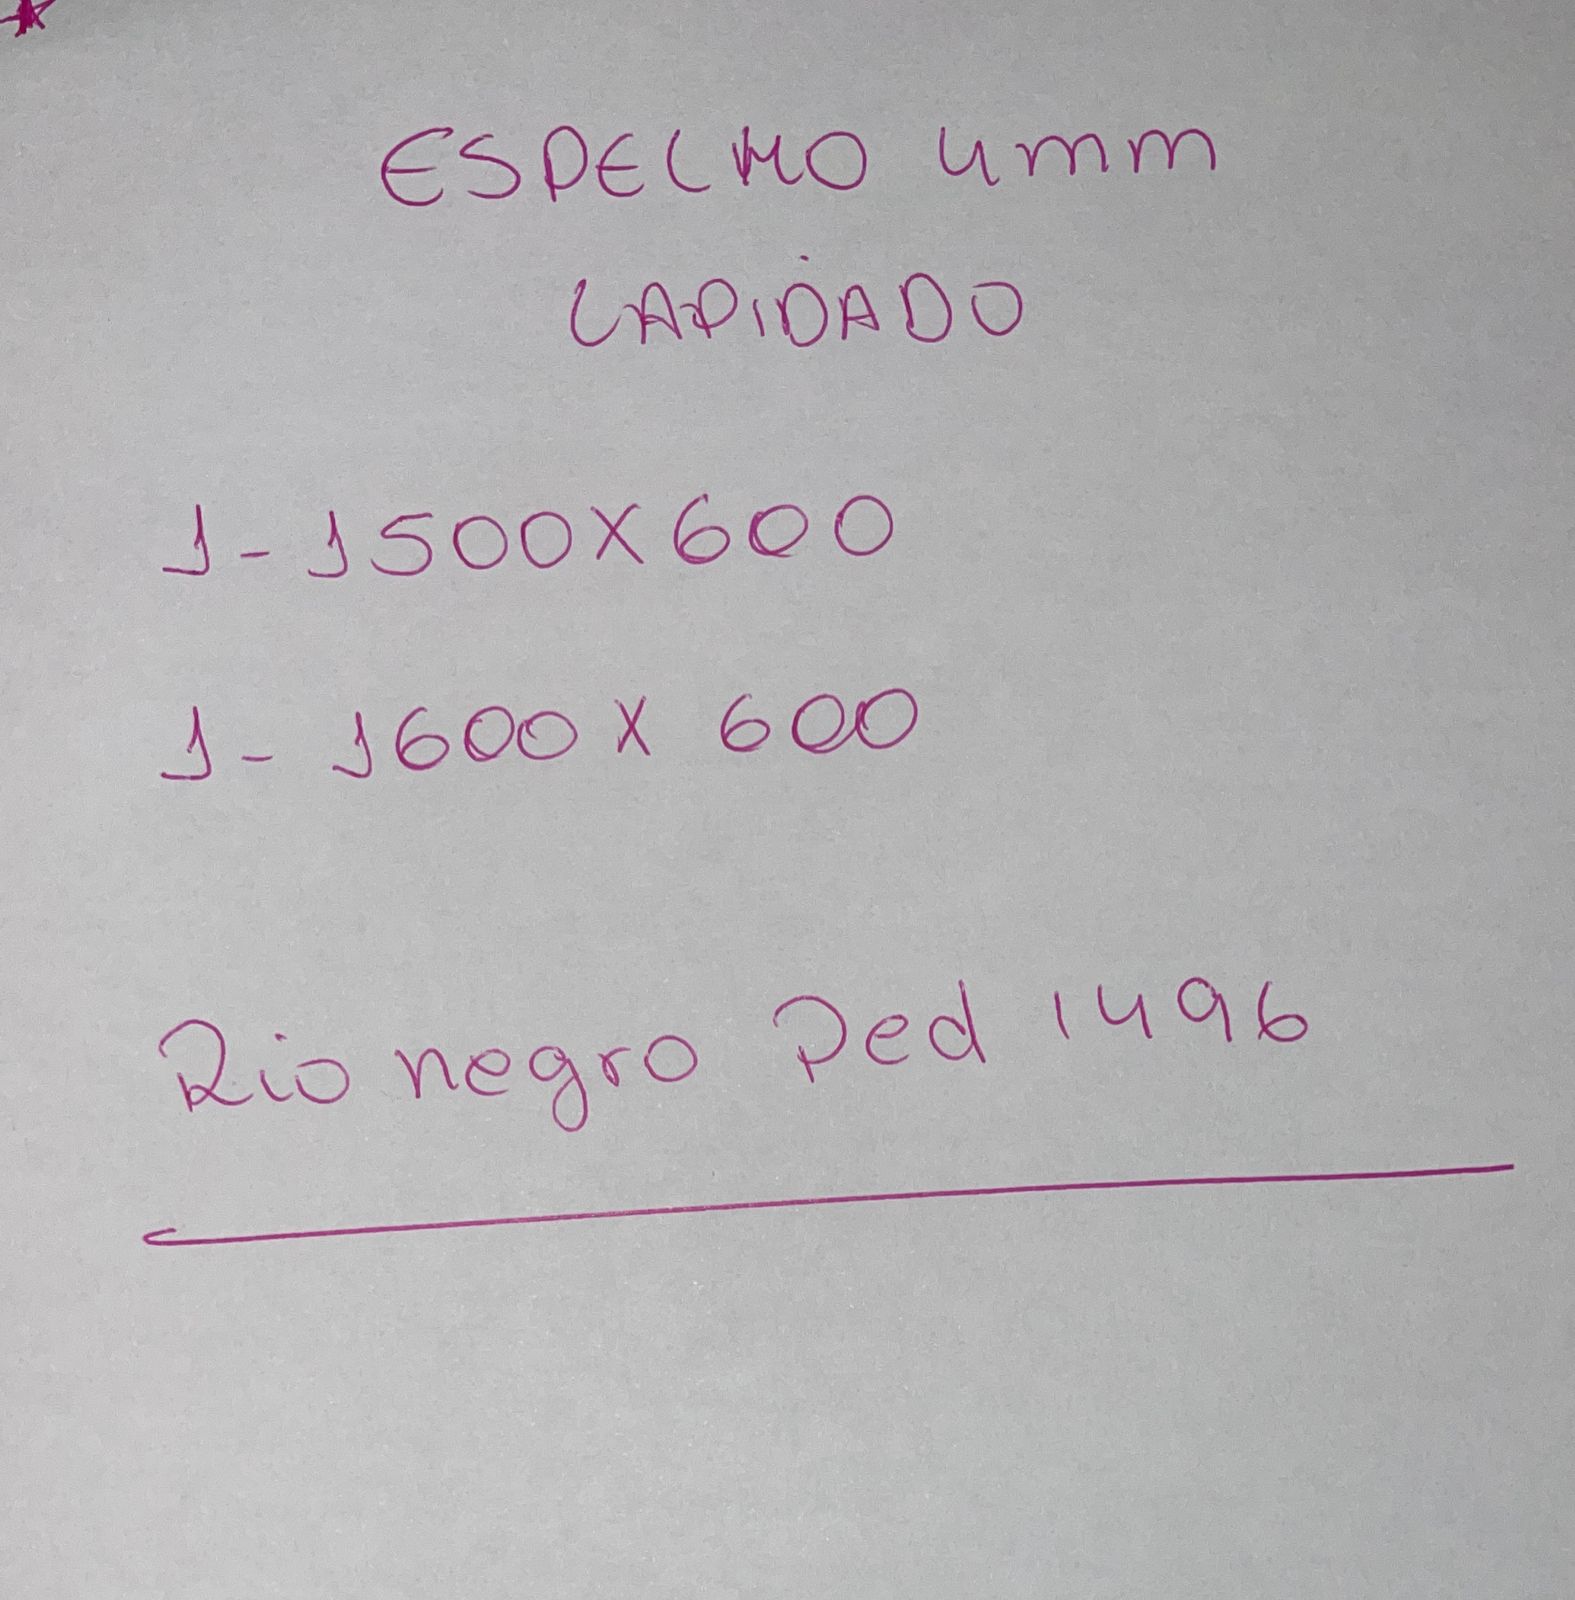 ESPELHO 4mm
LAPIDADO
1- 1500X600
1- 1600 X 600
Rio negro Ped 1496